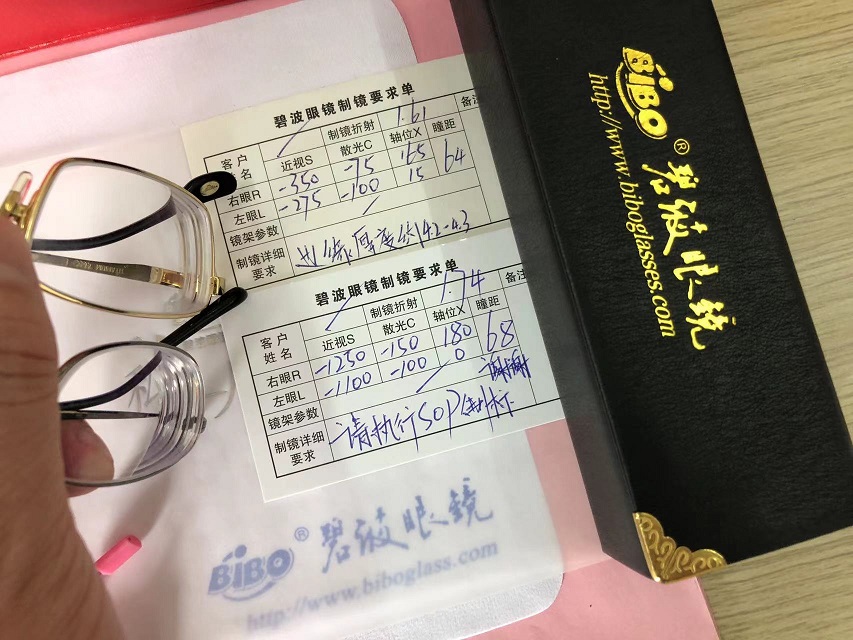 碧波眼镜制镜要求单
客户姓名 / 制镜折射 1.61 备注
近视S 散光C 轴位X 瞳距
右眼R -350 -75 165 64
左眼L -275 -100 15
镜架参数 /
制镜详细要求 边缘厚度 4.2-4.3
碧波眼镜制镜要求单
客户姓名 / 制镜折射 1.74 备注
近视S 散光C 轴位X 瞳距
右眼R -1250 -150 180 68
左眼L -1100 -100 0
镜架参数 / 谢谢
制镜详细要求 请执行SOP制标
BiBO® 碧波眼镜
http://www.biboglasses.com
BiBO® 碧波眼镜
http://www.biboglass.com